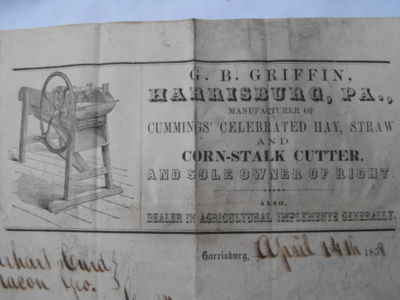 G. B. GRIFFIN,
HARRISBURG, PA.,
MANUFACTURER OF
CUMMINGS' CELEBRATED HAY, STRAW
AND
CORN-STALK CUTTER,
AND SOLE OWNER OF RIGHT.
ALSO,
DEALER IN AGRICULTURAL IMPLEMENTS GENERALLY.
Harrisburg, April 14th 1858
Macon Geo.